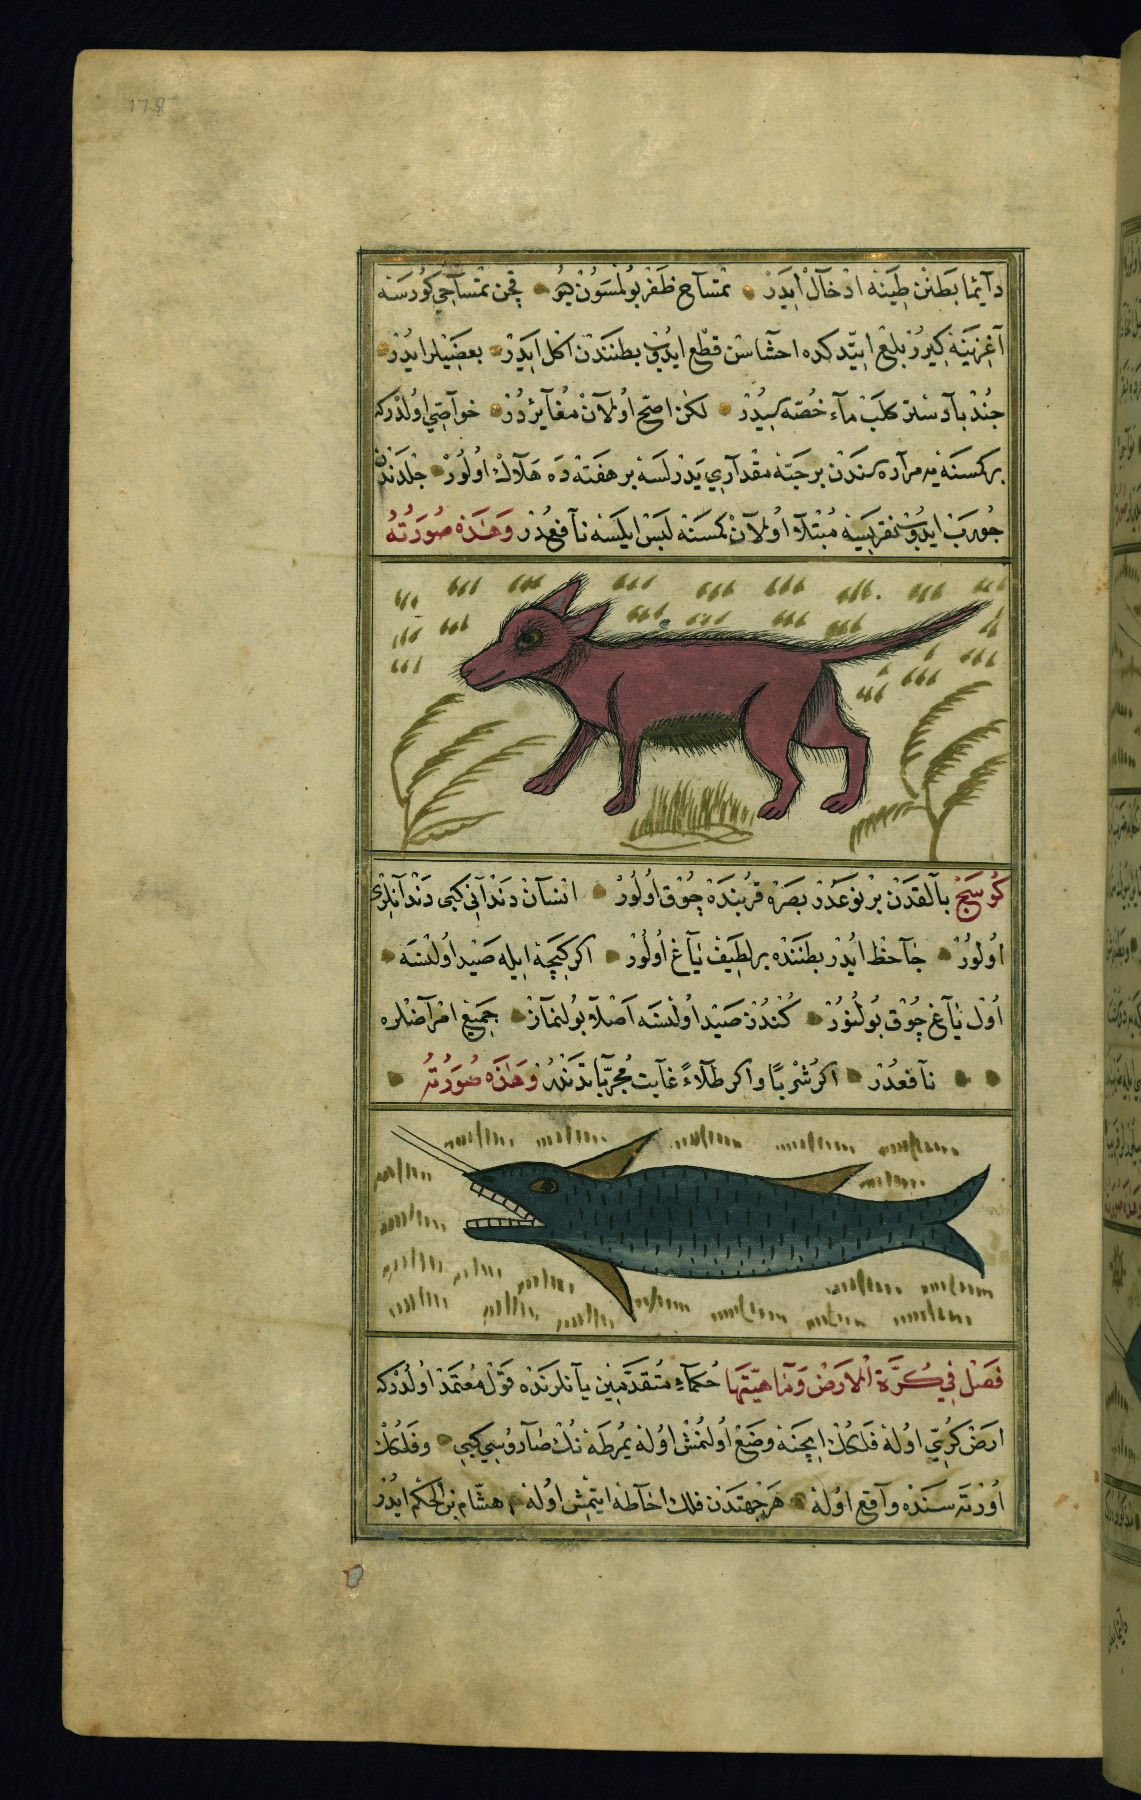 ١٧٥
دآيما بطنن طينه ادخال ايدر تمساح ظفر بولمسون ديو قچن تمساحي كورسه
آغزينه كيرر بلع ايتدكده احشاسن قطع ايدوب بطنندن اكل ايدر بعضيلر ايدر
جند بادستر كلب ماء خصيه سيدر لكن اصح اولان مغايردر خواصي اولدركه
بركمسنه يه مراره سندن برحبه مقداري يدرلسه برهفته ده هلاك اولور جلدندن
جورب ايدوب نقريسه مبتلا اولان كمسنه لبس ايلسه نافعدر وهذه صورته
كوسج بالقدن برنوعدر بصره قربنده چوق اولور انسان دنداني كبي دندانلري
اولور جاحظ ايدر بطننده برلطيف ياغ اولور اكر كيجه ايله صيد اولنسه
اول ياغ چوق بولنور كندز صيد اولنسه اصلا بولنماز جميع امراضلره
نافعدر اكر شربا واكر طلاء غايت مجرباتدندر وهذه صورته
فصل في كرة الارض وماهيتها حكماء متقدمين يانلرنده قول معتمد اولدركه
ارض كري اوله فلكك ايچنه وضع اولنمش اوله يمرطه نك صاروسي كبي وفلكك
اورته سنده واقع اوله هر جهتدن فلك احاطه ايتمش اوله هشام بن الحكم ايدر